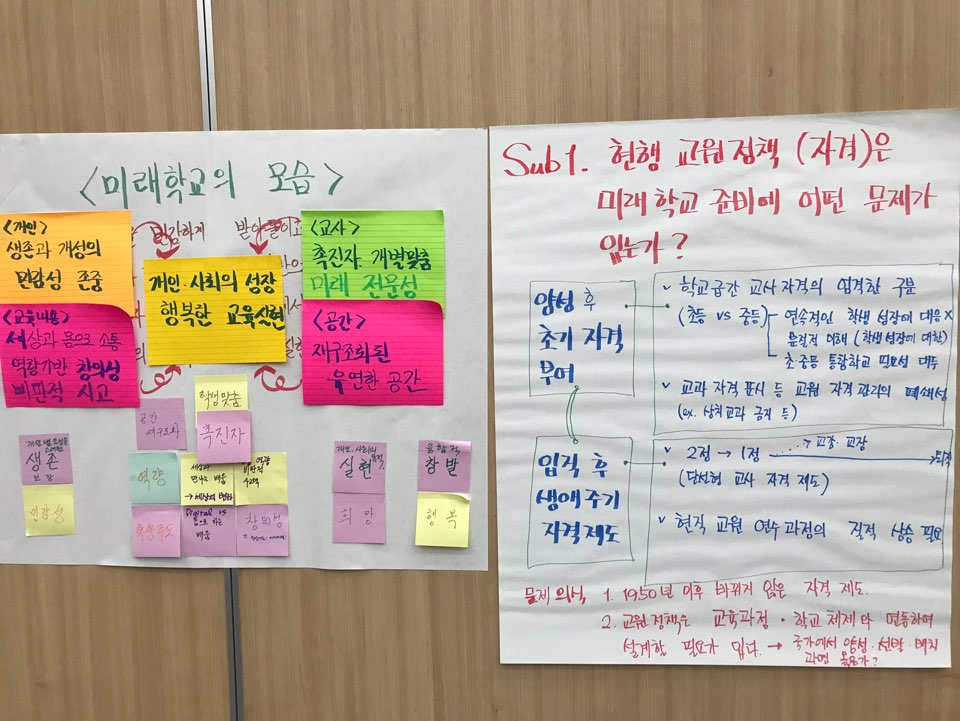 <미래학교의 모습>
<개인>
생존과 개성의
민감성 존중
민감하게
받아들이고
개인·사회의 성장
행복한 교육실현
<교사>
촉진자, 개별맞춤
미래 전문성
<교육내용>
세상과 몸으로 소통
역량기반 창의성
비판적 사고
<공간>
재구조화된
유연한 공간
학생맞춤
촉진자
공간
재구조화
생존
민감성
역량
세상과
만나는 배움
→ 세상의 변화
역량
비판적
사고력
몸으로 하는
배움
창의성
개인·사회의
실현
희망
융합적
창발
행복
Sub1. 현행 교원정책 (자격)은
미래학교 준비에 어떤 문제가
있는가?
양성 후
초기 자격
부여
✓ 학교급간 교사자격의 엄격한 구분
(초등 vs 중등)
연속적인 학생 성장에 대응 X
분절적 이해 (학생성장에 대한)
초중등 통합학교 필요성 대두
✓ 교과 자격 표시 등 교원 자격 관리의 폐쇄성
(ex. 상치교과 금지 등)
입직 후
생애 주기
자격 제도
✓ 2정 → 1정 → 교감·교장 퇴직
(단선형 교사 자격 제도)
✓ 현직 교원 연수 과정의 질적 상승 필요
문제의식 1. 1950년 이후 바뀌지 않은 자격 제도.
2. 교원정책은 교육과정·학교 체제와 연동하여
설계할 필요가 있다. → 국가에서 양성·선발·배치
과연 옳은가?